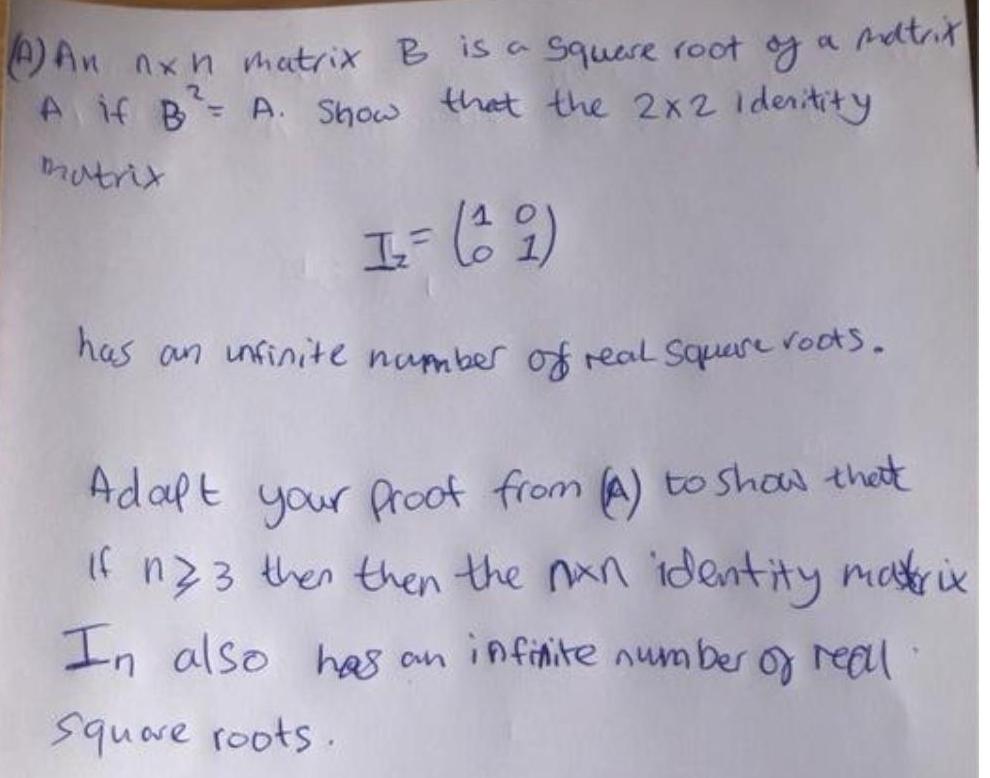 (A) An n×n matrix B is a square root of a matrix
A if B² = A. Show that the 2×2 Idenitity
matrix
I₂ = (1 0
0 1)
has an infinite number of real square roots.
Adapt your proof from (A) to show that
If n ≥ 3 then then the n×n identity matrix
In also has an infinite number of real
square roots.